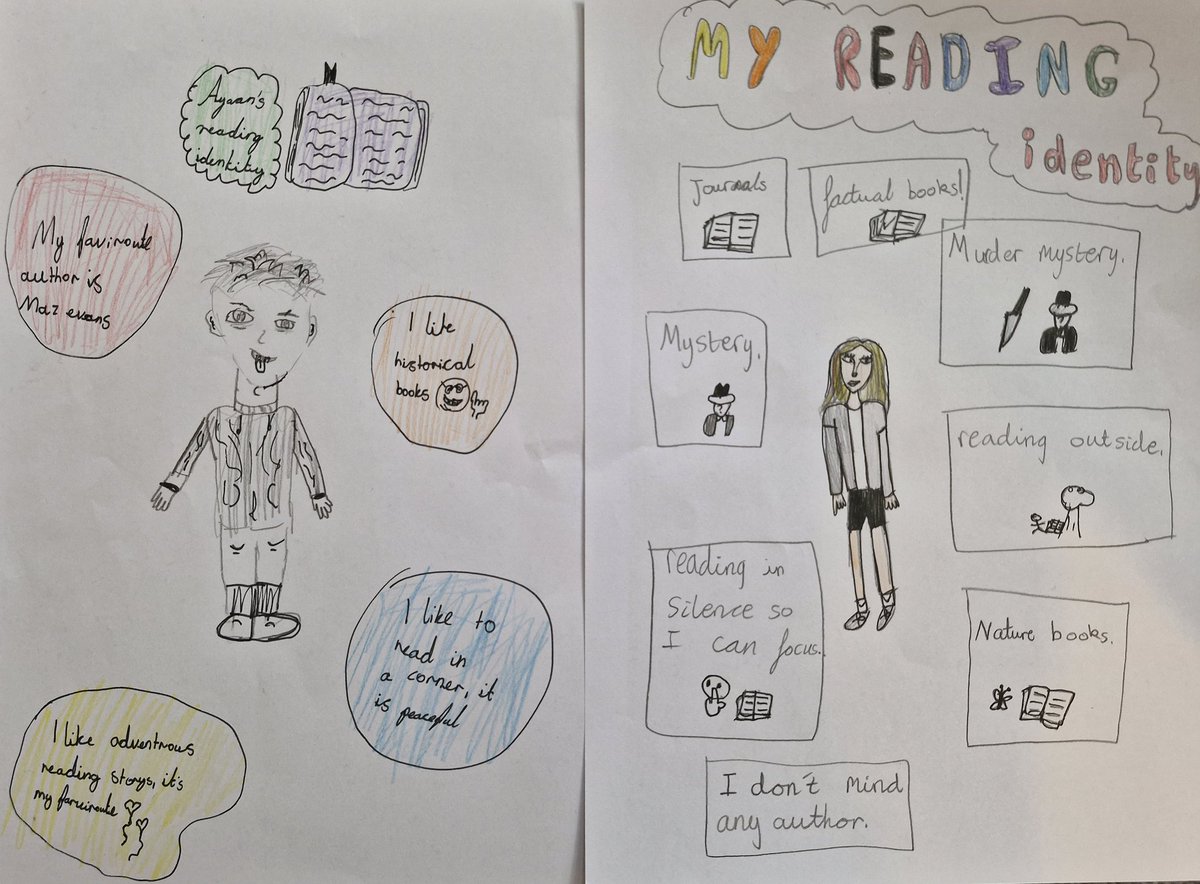 Ayaan's
reading
identity
My faviroute
author is
Maz evans
I like
historical
books
I like to
read in
a corner, it
is peaceful
I like adventrous
reading storys, it's
my farviroute
MY READING
identity
Journals
factual books!
Murder mystery.
Mystery.
reading outside.
reading in
silence so
I can focus.
Nature books.
I don't mind
any author.